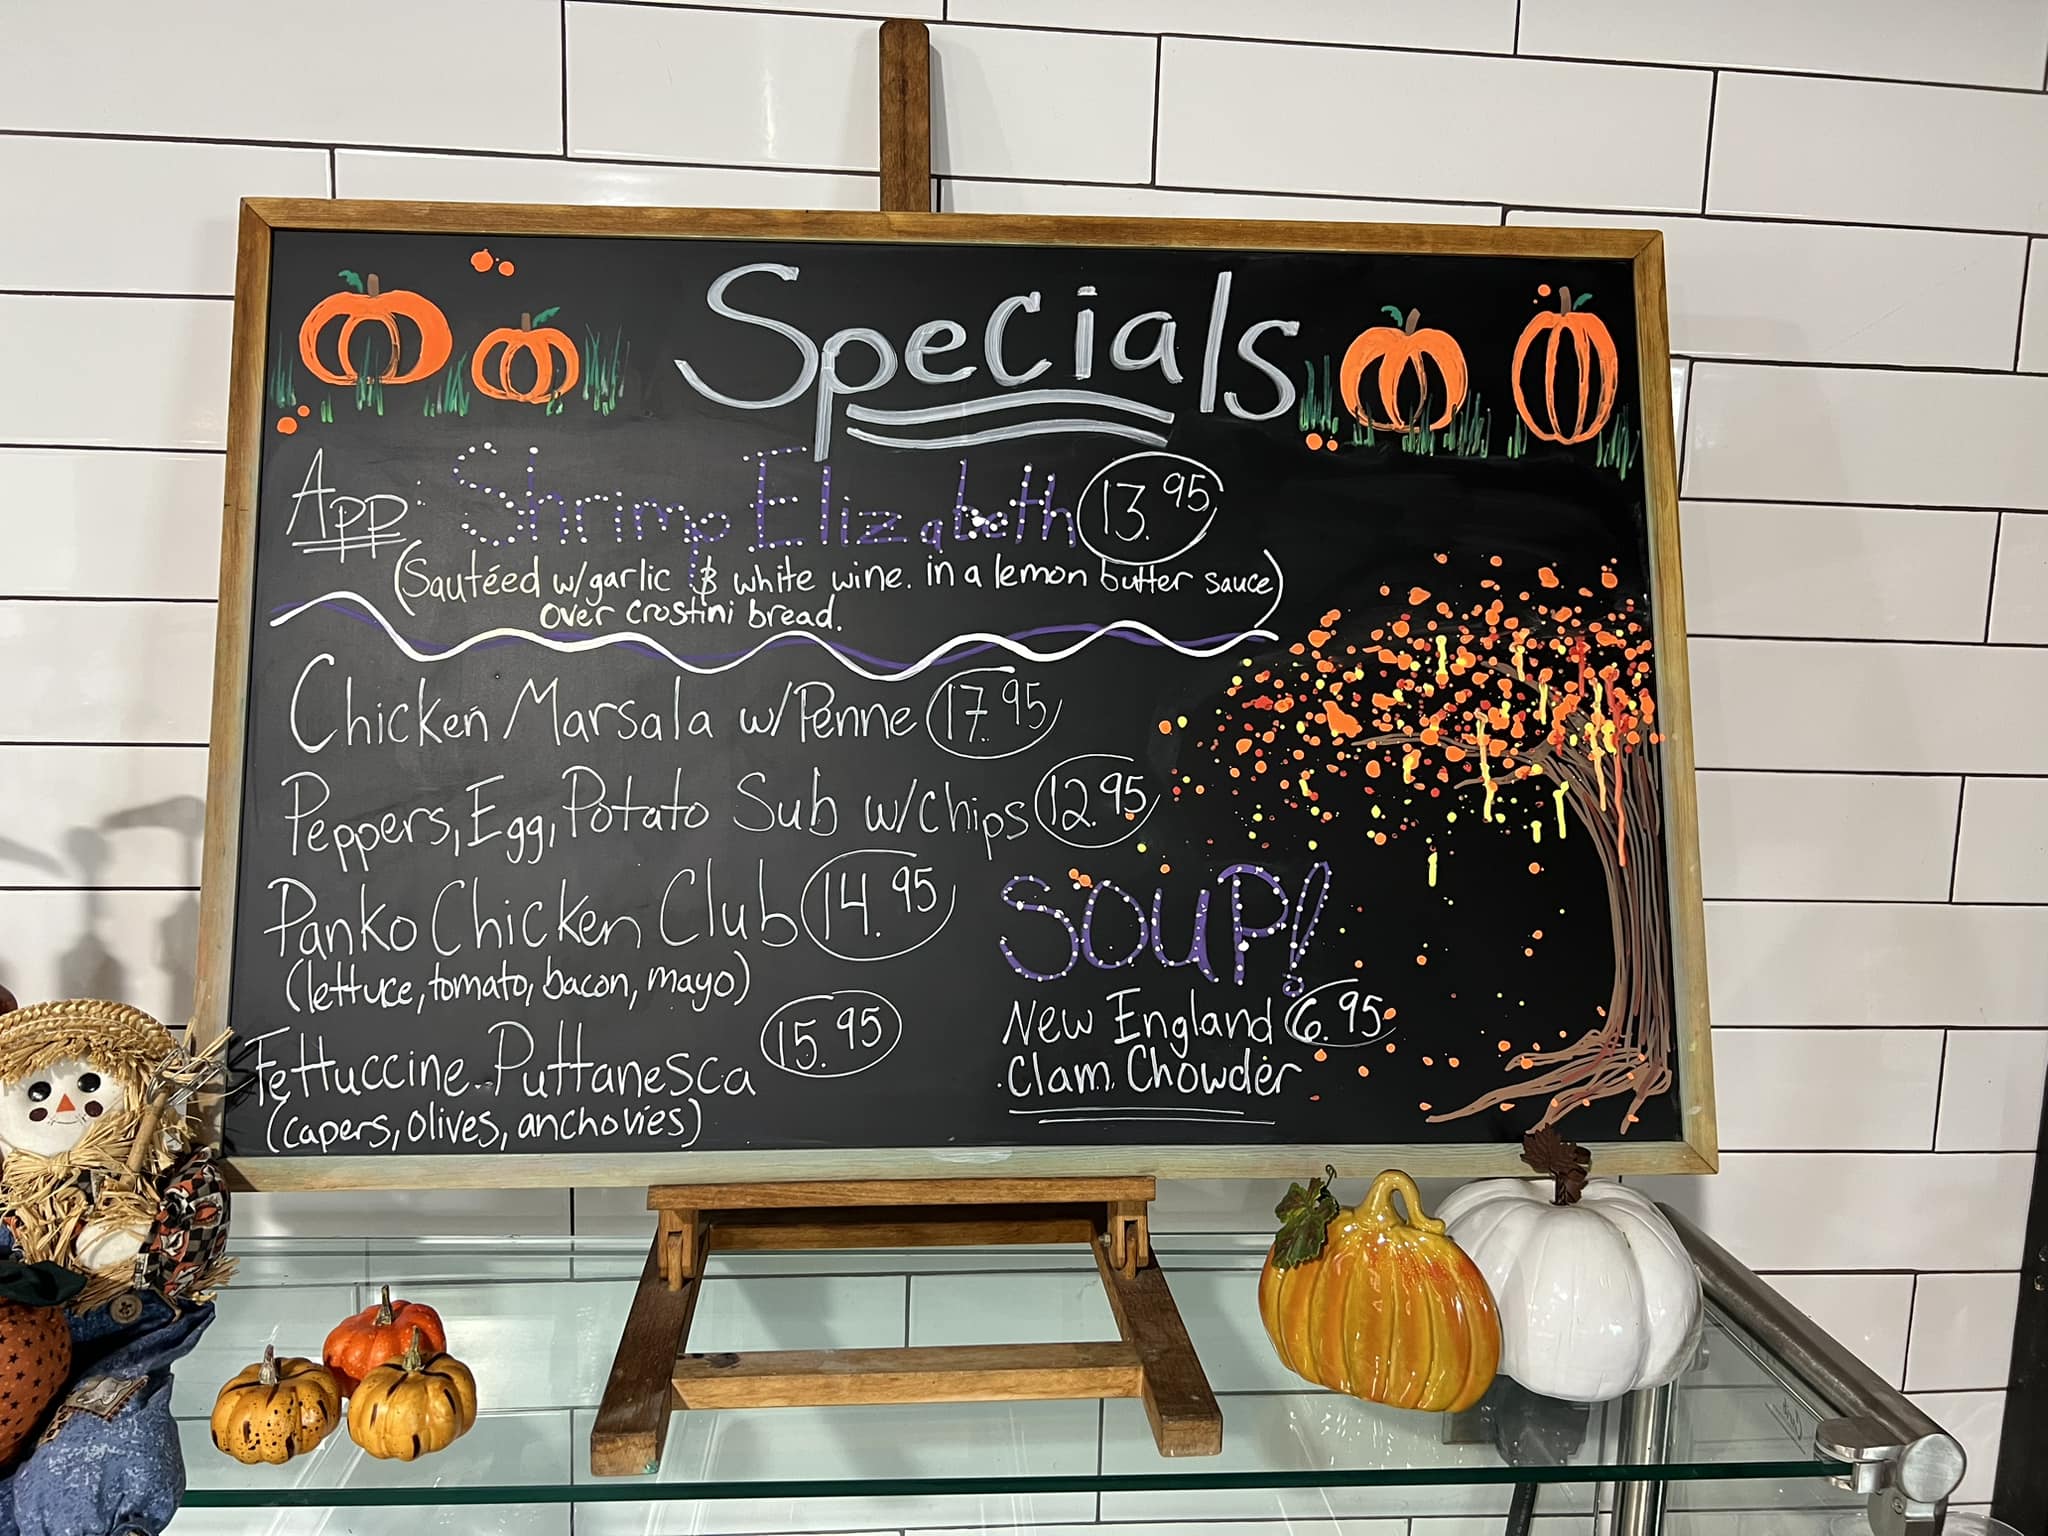 Specials
App: Shrimp Elizabeth 13.95
(Sautéed w/garlic & white wine. in a lemon butter sauce)
over crostini bread.
Chicken Marsala w/Penne 17.95
Peppers, Egg, Potato Sub w/Chips 12.95
Panko Chicken Club 14.95
(lettuce, tomato, bacon, mayo)
Fettuccine Puttanesca 15.95
(capers, olives, anchovies)
SOUP!
New England 6.95
Clam Chowder